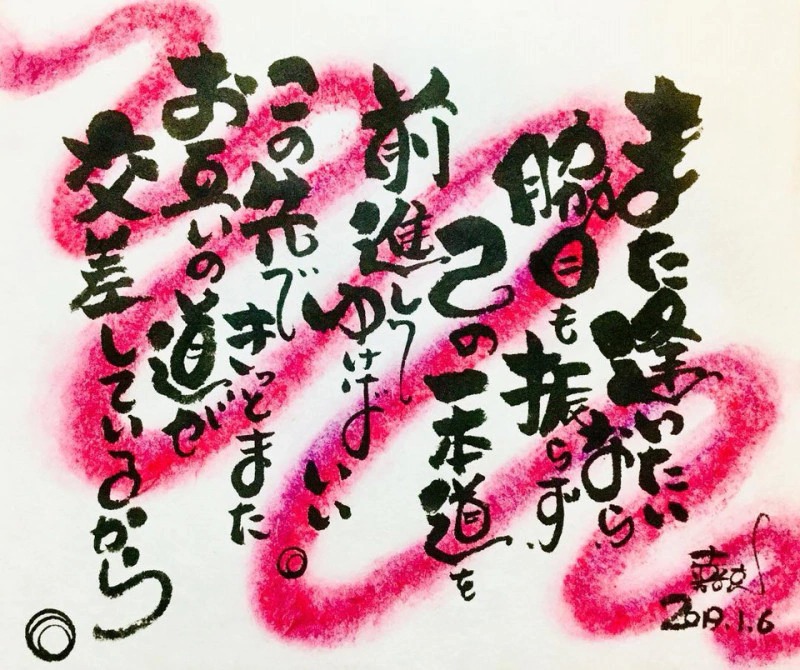 また逢いたい
なら
脇目も振らず
己の一本道を
前進して
ゆけばいい。
この先で
きっとまた
お互いの道が
交差しているから。
2019.1.6